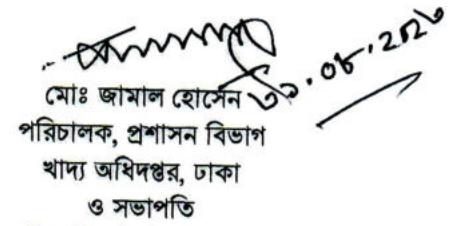 মোঃ জামাল হোসেন
পরিচালক, প্রশাসন বিভাগ
খাদ্য অধিদপ্তর, ঢাকা
ও সভাপতি